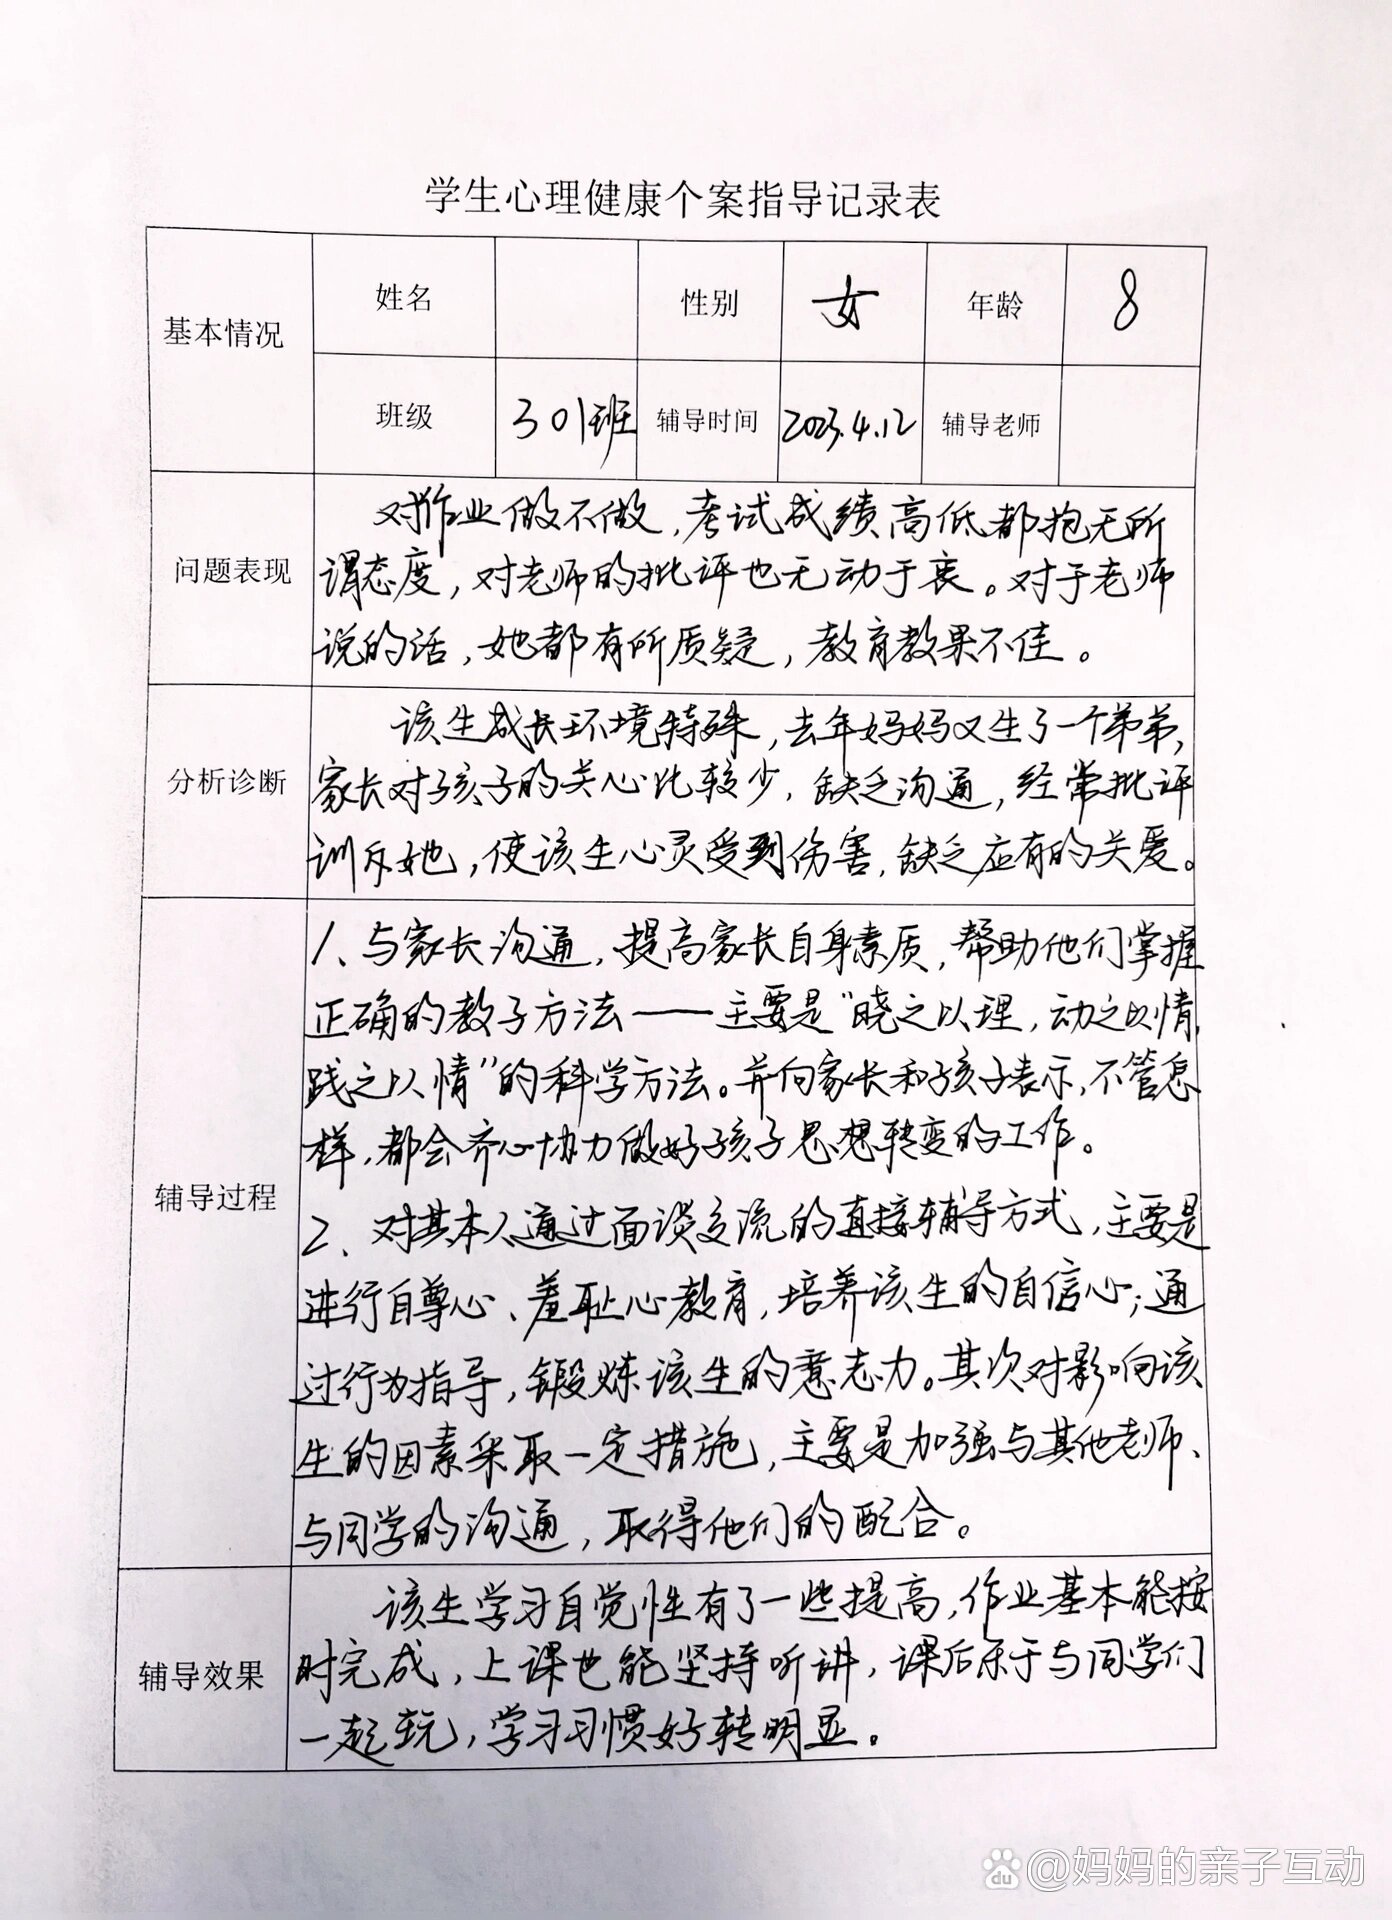 学生心理健康个案指导记录表
基本情况 姓名 性别 女 年龄 8
班级 301班 辅导时间 2023.4.12 辅导老师
问题表现
对作业做不做,考试成绩高低都抱无所
谓态度,对老师的批评也无动于衷。对于老师
说的话,她都有所质疑,教育教果不佳。
分析诊断
该生成长环境特殊,去年妈妈又生了一个弟弟,
家长对孩子的关心比较少,缺乏沟通,经常批评
训斥她,使该生心灵受到伤害,缺乏应有的关爱。
辅导过程
1、与家长沟通,提高家长自身素质,帮助他们掌握
正确的教子方法——主要是“晓之以理,动之以情,
践之以情”的科学方法。并向家长和孩子表示,不管怎
样,都会齐心协力做好孩子思想转变的工作。
2、对其本人通过面谈交流的直接辅导方式,主要是
进行自尊心、羞耻心教育,培养该生的自信心;通
过行为指导,锻炼该生的意志力。其次对影响该
生的因素采取一定措施,主要是加强与其他老师、
与同学的沟通,取得他们的配合。
辅导效果
该生学习自觉性有了一些提高,作业基本能按
时完成,上课也能坚持听讲,课后乐于与同学们
一起玩,学习习惯好转明显。
du @妈妈的亲子互动